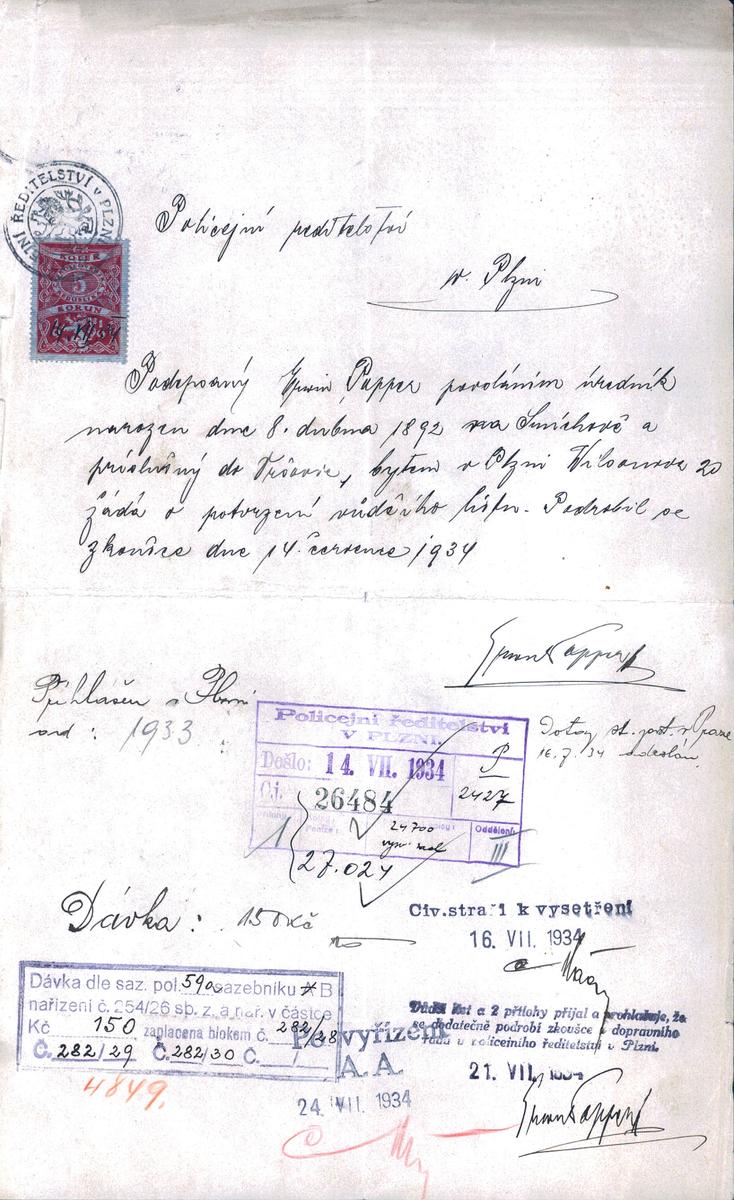 POLICEJNÍ ŘEDITELSTVÍ v PLZNI
5
KORUN
Policejní ředitelství
v. Plzni
Podepsaný Erwin Popper povoláním úředník
narozen dne 8. dubna 1892 na Smíchově a
příslušný do Vršovic, bytem v Plzni Wilsonova 20
žádá o potvrzení vůdčího listu. Podrobil se
zkoušce dne 14. července 1934
Erwin Popper
Přihlášen v Plzni
od: 1933
Dotaz st. zast. v Praze
16.7.34 odeslán.
Policejní ředitelství
V PLZNI.
Došlo: 14. VII. 1934
P
2427
Č.j. 26484
24700
Oddělení:
III
1
27.024
Dávka: 150 Kč
Civ. stráži k vyšetření
16. VII. 1934
Dávka dle saz. pol. 59a sazebníku B
nařízení č. 254/26 sb. z. a nař. v částce
Kč 150 zaplacena blokem č. 282/28
Č. 282/29 Č. 282/30 Č. /
4849.
Po vyřízení
A. A.
24. VII. 1934
Vůdčí list a 2 přílohy přijal a prohlašuje, že
se dodatečně podrobí zkoušce z dopravního
řádu u policejního ředitelství v Plzni.
21. VII. 1934
Erwin Popper